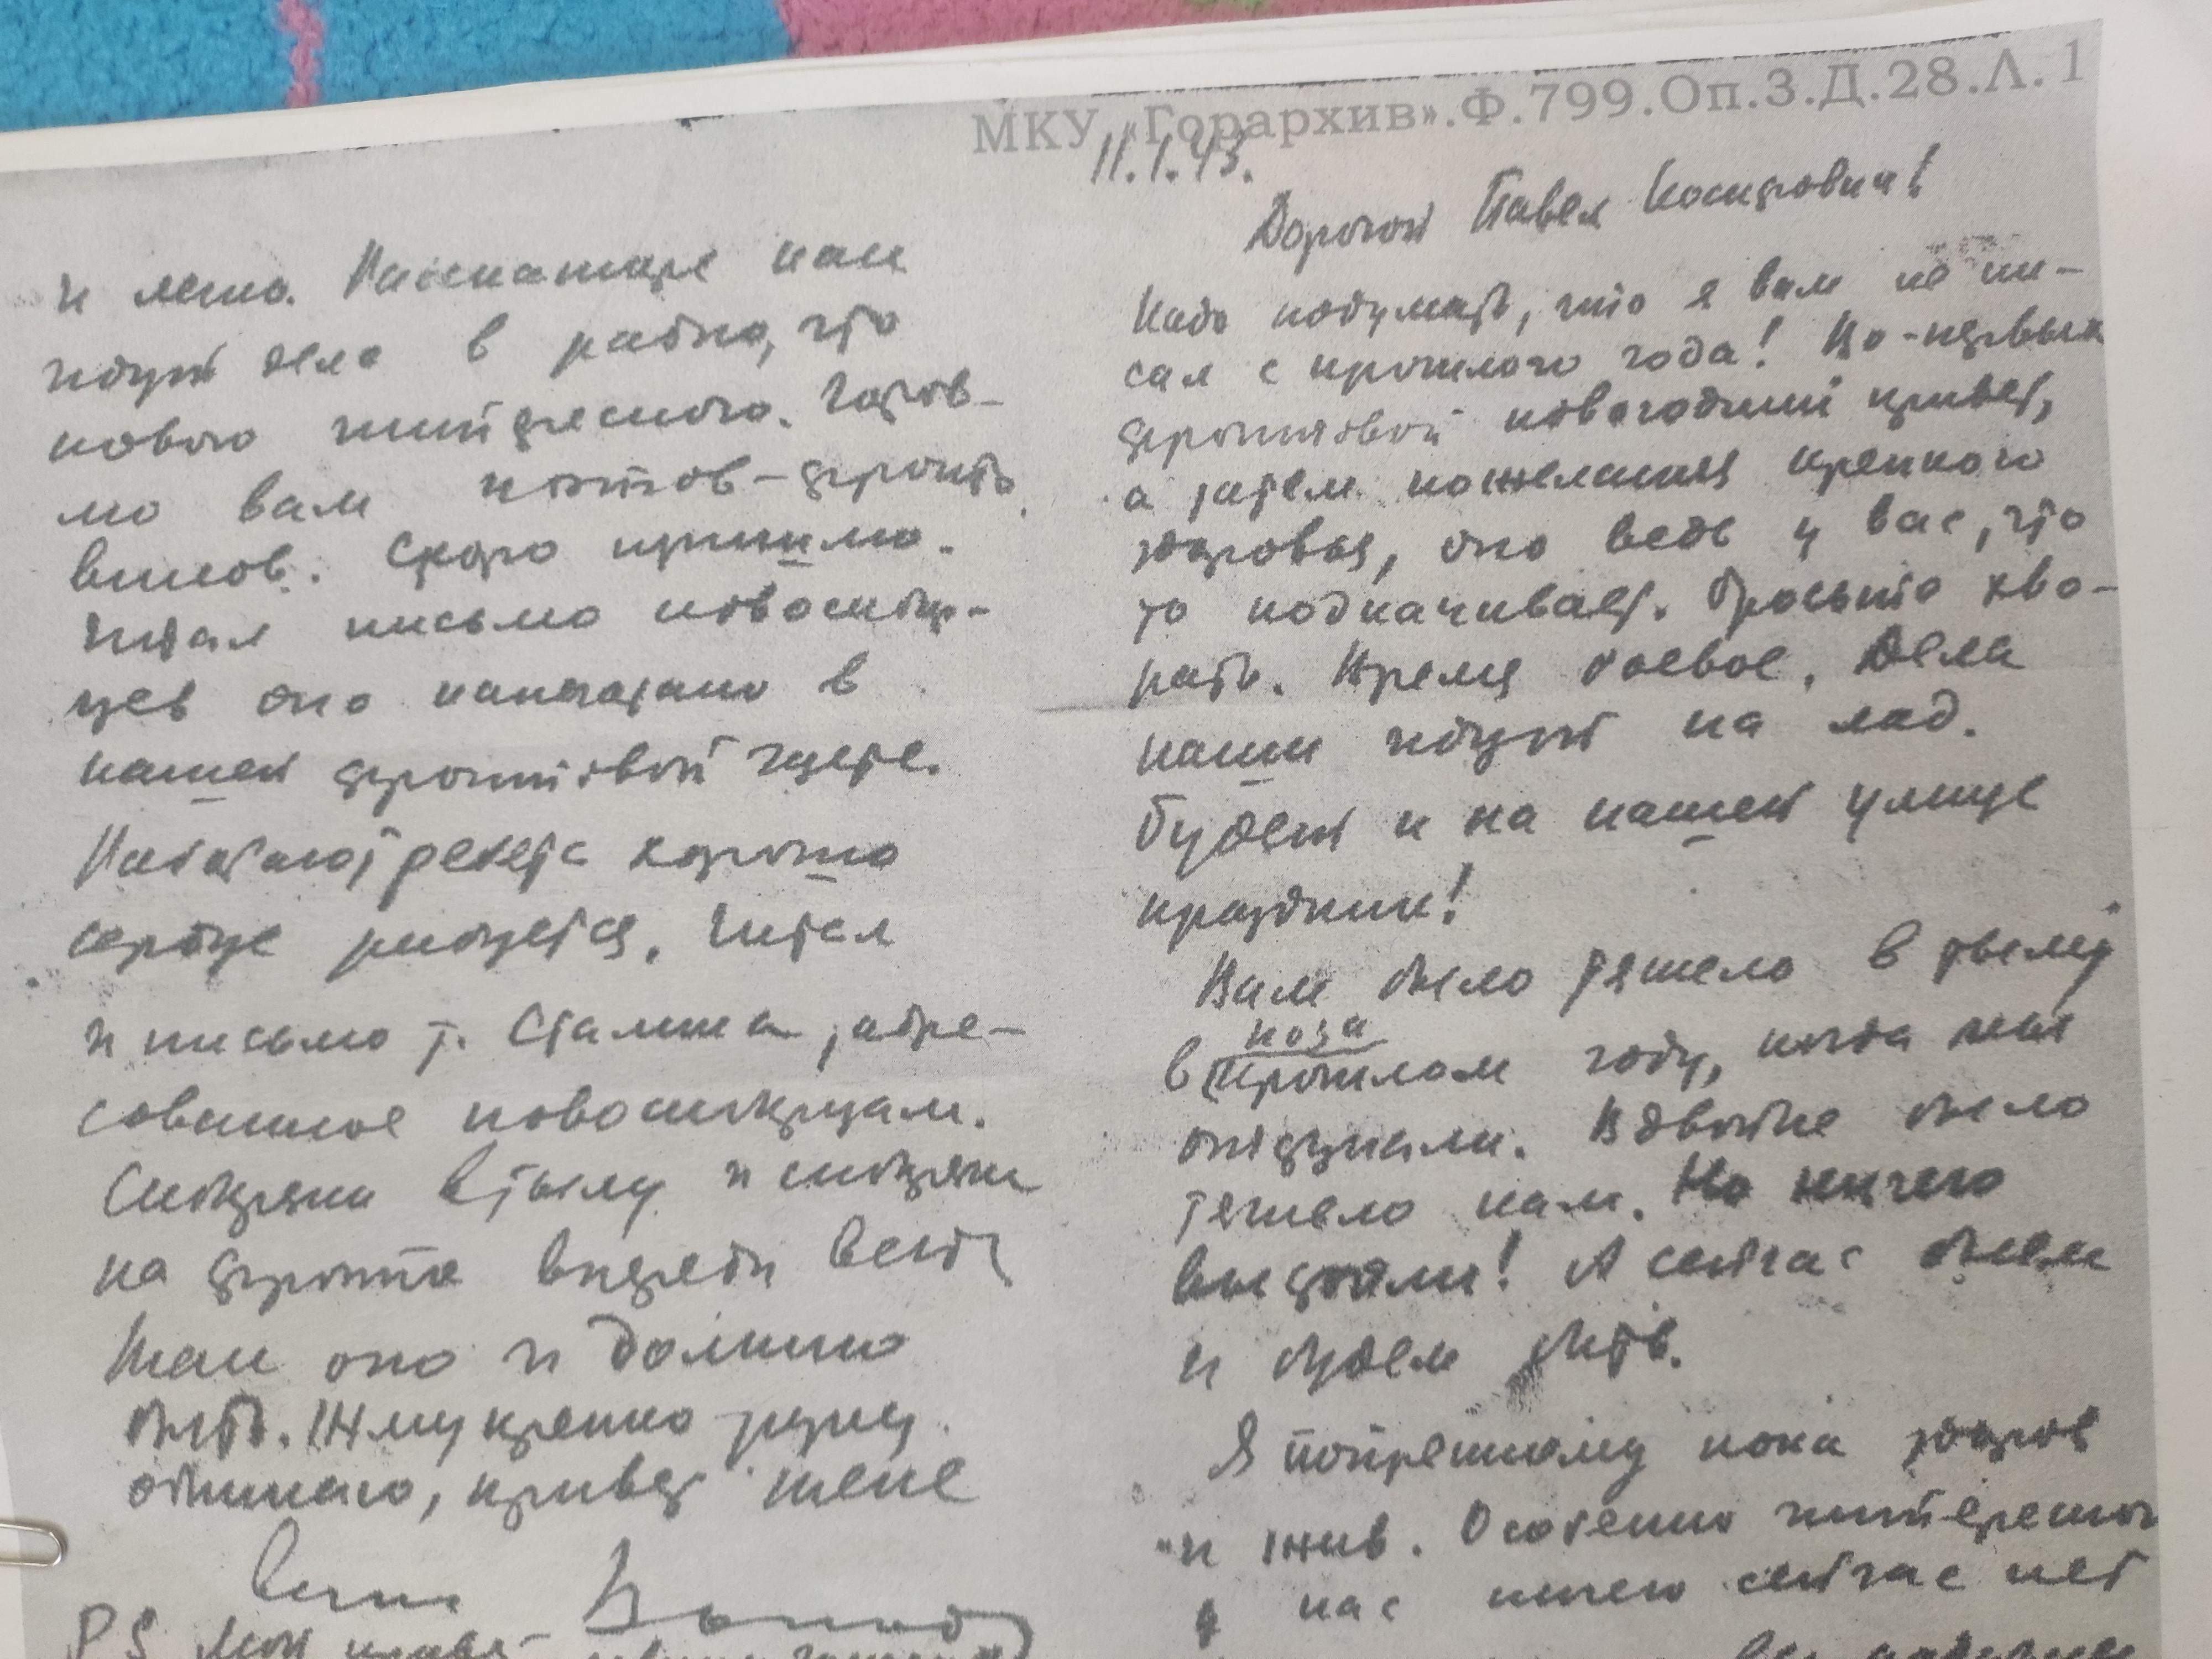 МКУ «Горархив».Ф.799.Оп.3.Д.28.Л.1
11.1.43.
Дорогой Павел
Надо подумать, что я вам не пи-
сал с прошлого года! Во-первых
фронтовой новогодний привет,
а затем пожелания крепкого
здоровья, оно ведь у вас, что
то подкачивает. Бросьте хво-
рать. Время боевое. Дела
наши идут на лад.
Будет и на нашей улице
праздник!
Вам было тяжело в тылу
в поза
прошлом году, когда мы
отступали. Вдвойне было
тяжело нам. Но ничего
выстояли! А сейчас бьем
и будем бить.
Я попрежнему пока здоров
и жив. Особенно интересного
у нас ничего сейчас нет
и лето. Расскажите как
идут дела в районе, что
нового интересного. Готов-
лю вам котов-фронто
виков. Скоро пришлю.
Читал письмо новосибир-
цев оно напечатано в
нашей фронтовой газете.
Работают ребята хорошо
сердце радуется. Читал
и письмо т. Сталина, адре-
сованное новосибирцам.
Сибиряки в тылу и сибиряки
на фронте впереди везде
Так оно и должно
быть. Жму крепко руку
обнимаю, привет жене
Ваш
PS Мой